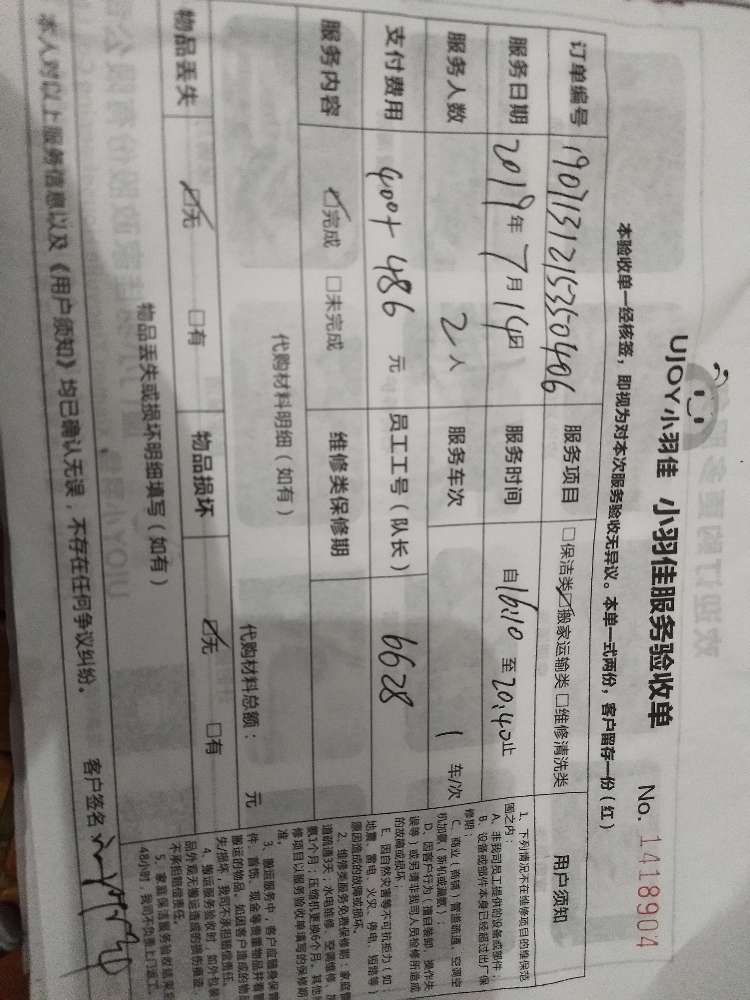 UJOY小羽佳 小羽佳服务验收单 No. 1418904
本验收单一经核签，即视为对本次服务验收无异议。本单一式两份，客户留存一份（红）
订单编号 190713121535040406 服务项目 □保洁类☑搬家运输类□维修清洗类 用户须知
服务日期 2019年7月14日 服务时间 自16:10至20:40止
服务人数 2人 服务车次 1 车/次
支付费用 400+486 元 员工工号（队长） 6628
服务内容 ☑完成 □未完成 维修类保修期
代购材料明细（如有） 代购材料总额： 元
物品丢失 ☑无 □有 物品损坏 ☑无 □有
物品丢失或损坏明细填写（如有）
本人对以上服务信息以及《用户须知》均已确认无误，不存在任何争议纠纷。 客户签名
1、下列情况不在维修项目的维保范
围之内：
A、非我司员工提供的设备或部件；
B、设备或部件本身已经超过出厂保
修期；
C、商业（商铺）管道疏通、空调空
机加氟（新机或漏氟）；
D、因客户行为（擅自装卸、操作失
误等）或另请非我司人员检修所造成
的故障或损坏；
E、因自然灾害等不可抗拒力（如：
地震、雷电、火灾、停电、短路等）
原因造成的故障或损坏。
2、维修类服务免费保修期：家庭管
道疏通3天，水电维修、空调维修、
氟1个月；压缩机更换6个月。其他
修项目以服务验收单填写的保修期
准。
3、搬运服务中，客户应随身保管
件、首饰、现金等贵重物品并看管
搬运的物品，如因客户造成的物品
失/损坏，我司不承担赔偿责任。
4、搬运服务验收时，如外包装
品外观无搬运造成的损伤痕迹
不承担赔偿责任。
5、家庭保洁服务验收结束
48小时，我司不负责上门返工。